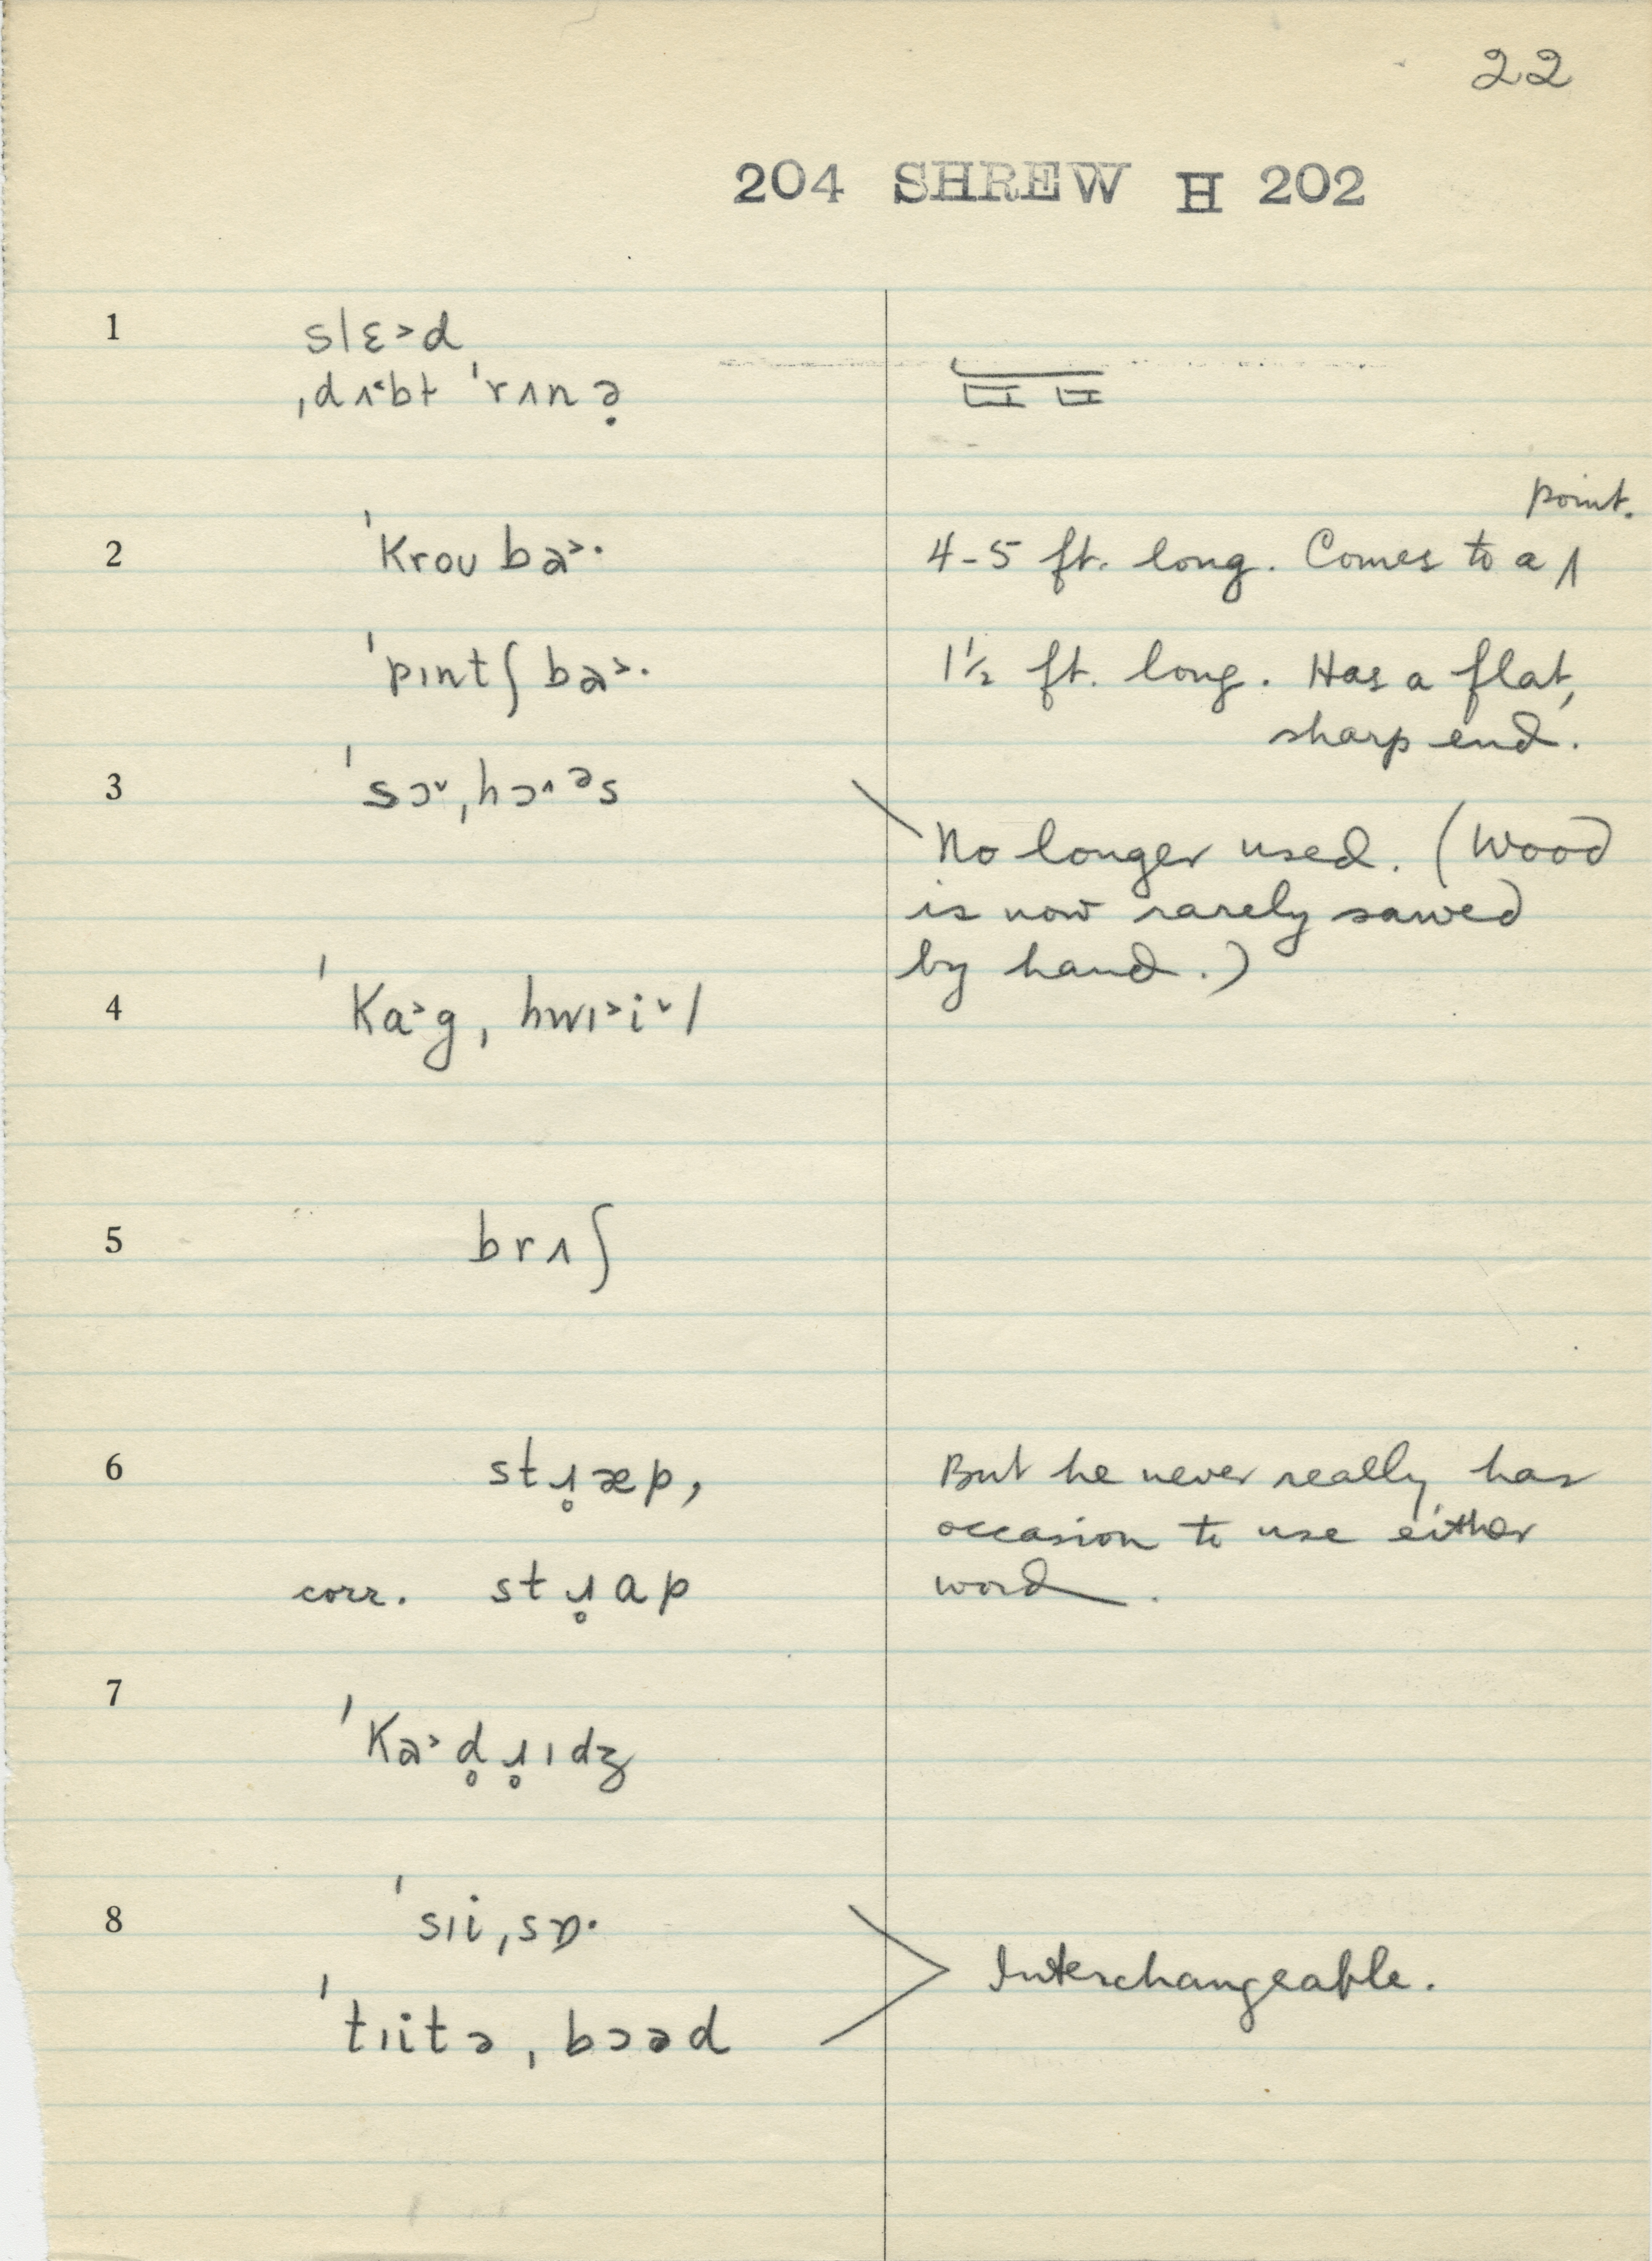 22
204 SHREW H 202
1 slɛ˃d
ˌdʌ˂bt ˈrʌnə̣
point.
2 ˈkrou ba˃· 4-5 ft. long. Comes to a ʌ
ˈpɪntʃ ba˃· 1½ ft. long. Has a flat,
sharp end.
3 ˈsɔ˅ˌhɔ˄ᵊs
No longer used. (Wood
is now rarely sawed
by hand.)
4 ˈka˃gˌhwɪ˃i˅l
5 brʌʃ
6 stɹ̥æp, But he never really has
occasion to use either
corr. stɹ̥ap word.
7 ˈka˃d̥ɹ̥ɪdʒ
8 ˈsɪiˌsɒ·
Interchangeable.
ˈtɪitəˌbɔəd